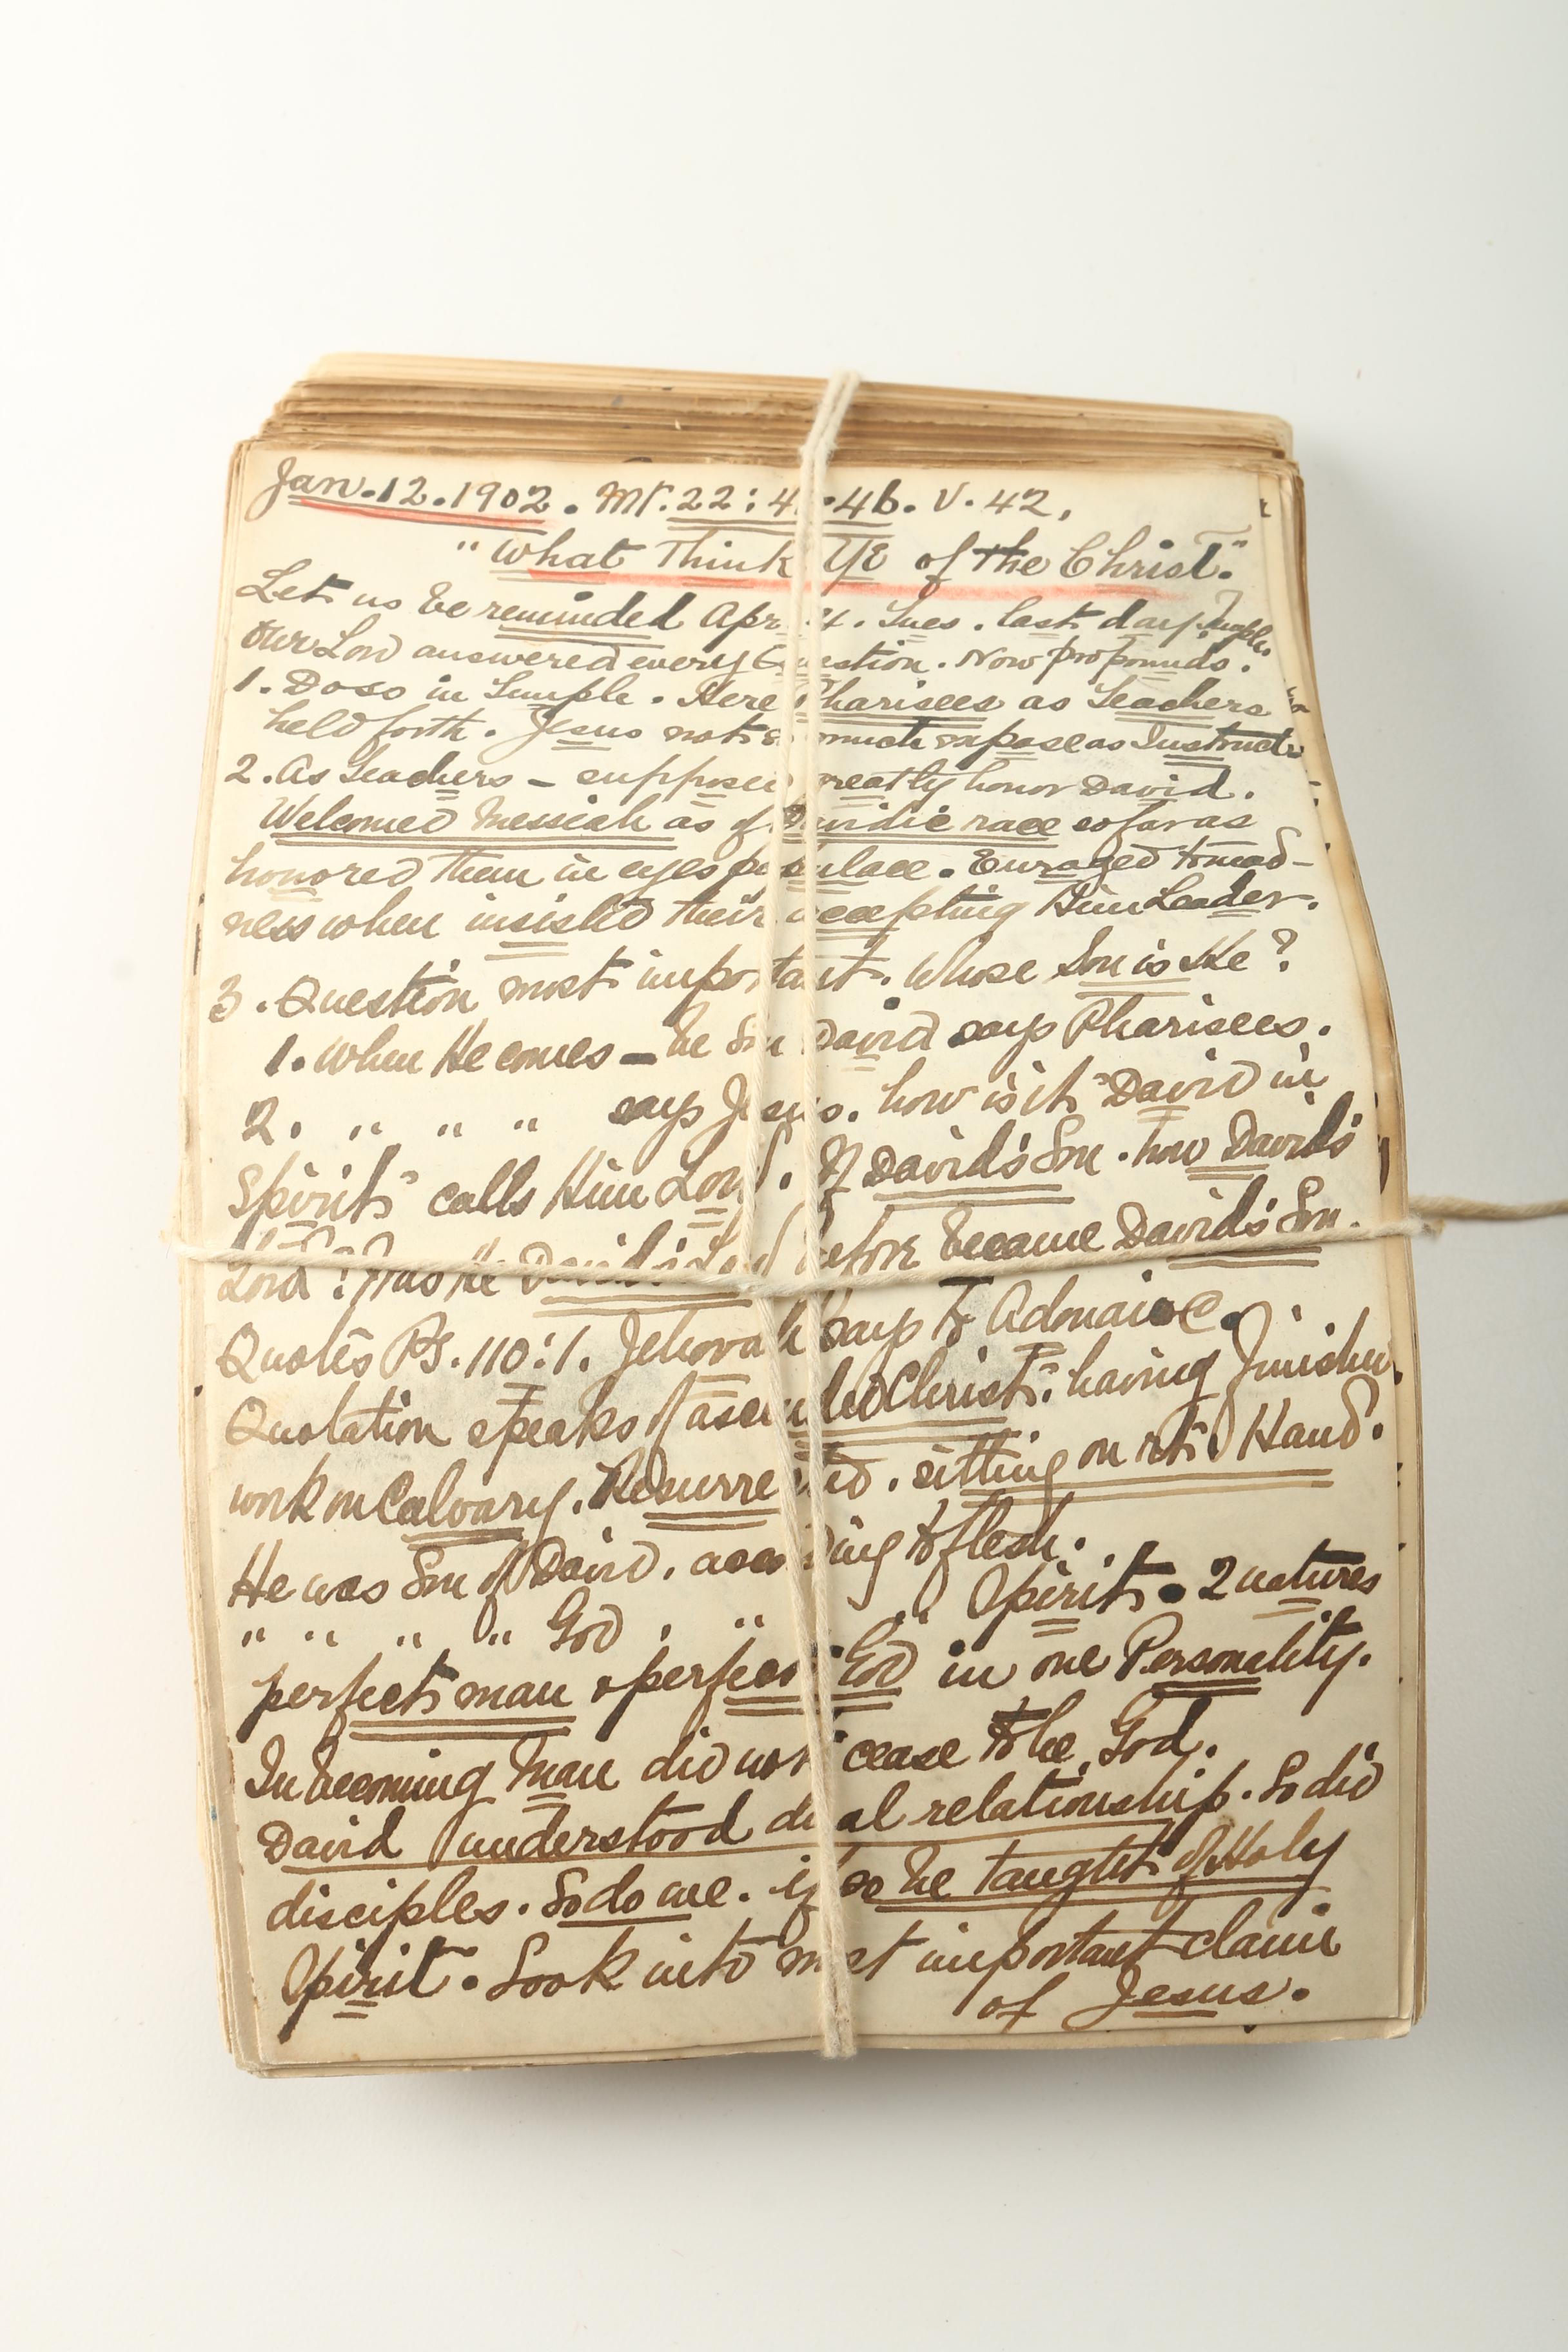 Jan. 12. 1902. Mt. 22: 4 -46. V. 42,
"What Think Ye of the Christ."
Let us be reminded Apr. 4. Tues. last day Temple
Our Lord answered every Question. Now propounds.
1. Does so in Temple. Here Pharisees as Teachers
held forth. Jesus not so much expose as Instruct
2. As Teachers – supposed greatly honor David.
Welcomed Messiah as of Davidic race so far as
honored them in eyes populace. Enraged to mad-
ness when insisted their accepting Him Leader.
3. Question most important. Whose Son is He?
1. When He comes – be Son David says Pharisees.
2. " " " says Jesus. how is it "David in
Spirit" calls Him Lord. If David's Son. how David's
Lord? Was He David's Lord before became David's Son.
Quotes Ps. 110:1. Jehovah says to Adonai
Quotation speaks of ascended Christ. having finished
work on Calvary. Resurrected. sitting on rt. Hand.
He was Son of David. according to flesh.
" " " " God, " " Spirit. 2 natures
perfect man & perfect God in one Personality.
In becoming Man did not cease to be God.
David understood dual relationship. So did
disciples. So do we. if so be taught of Holy
Spirit. Look into most important claim
of Jesus.